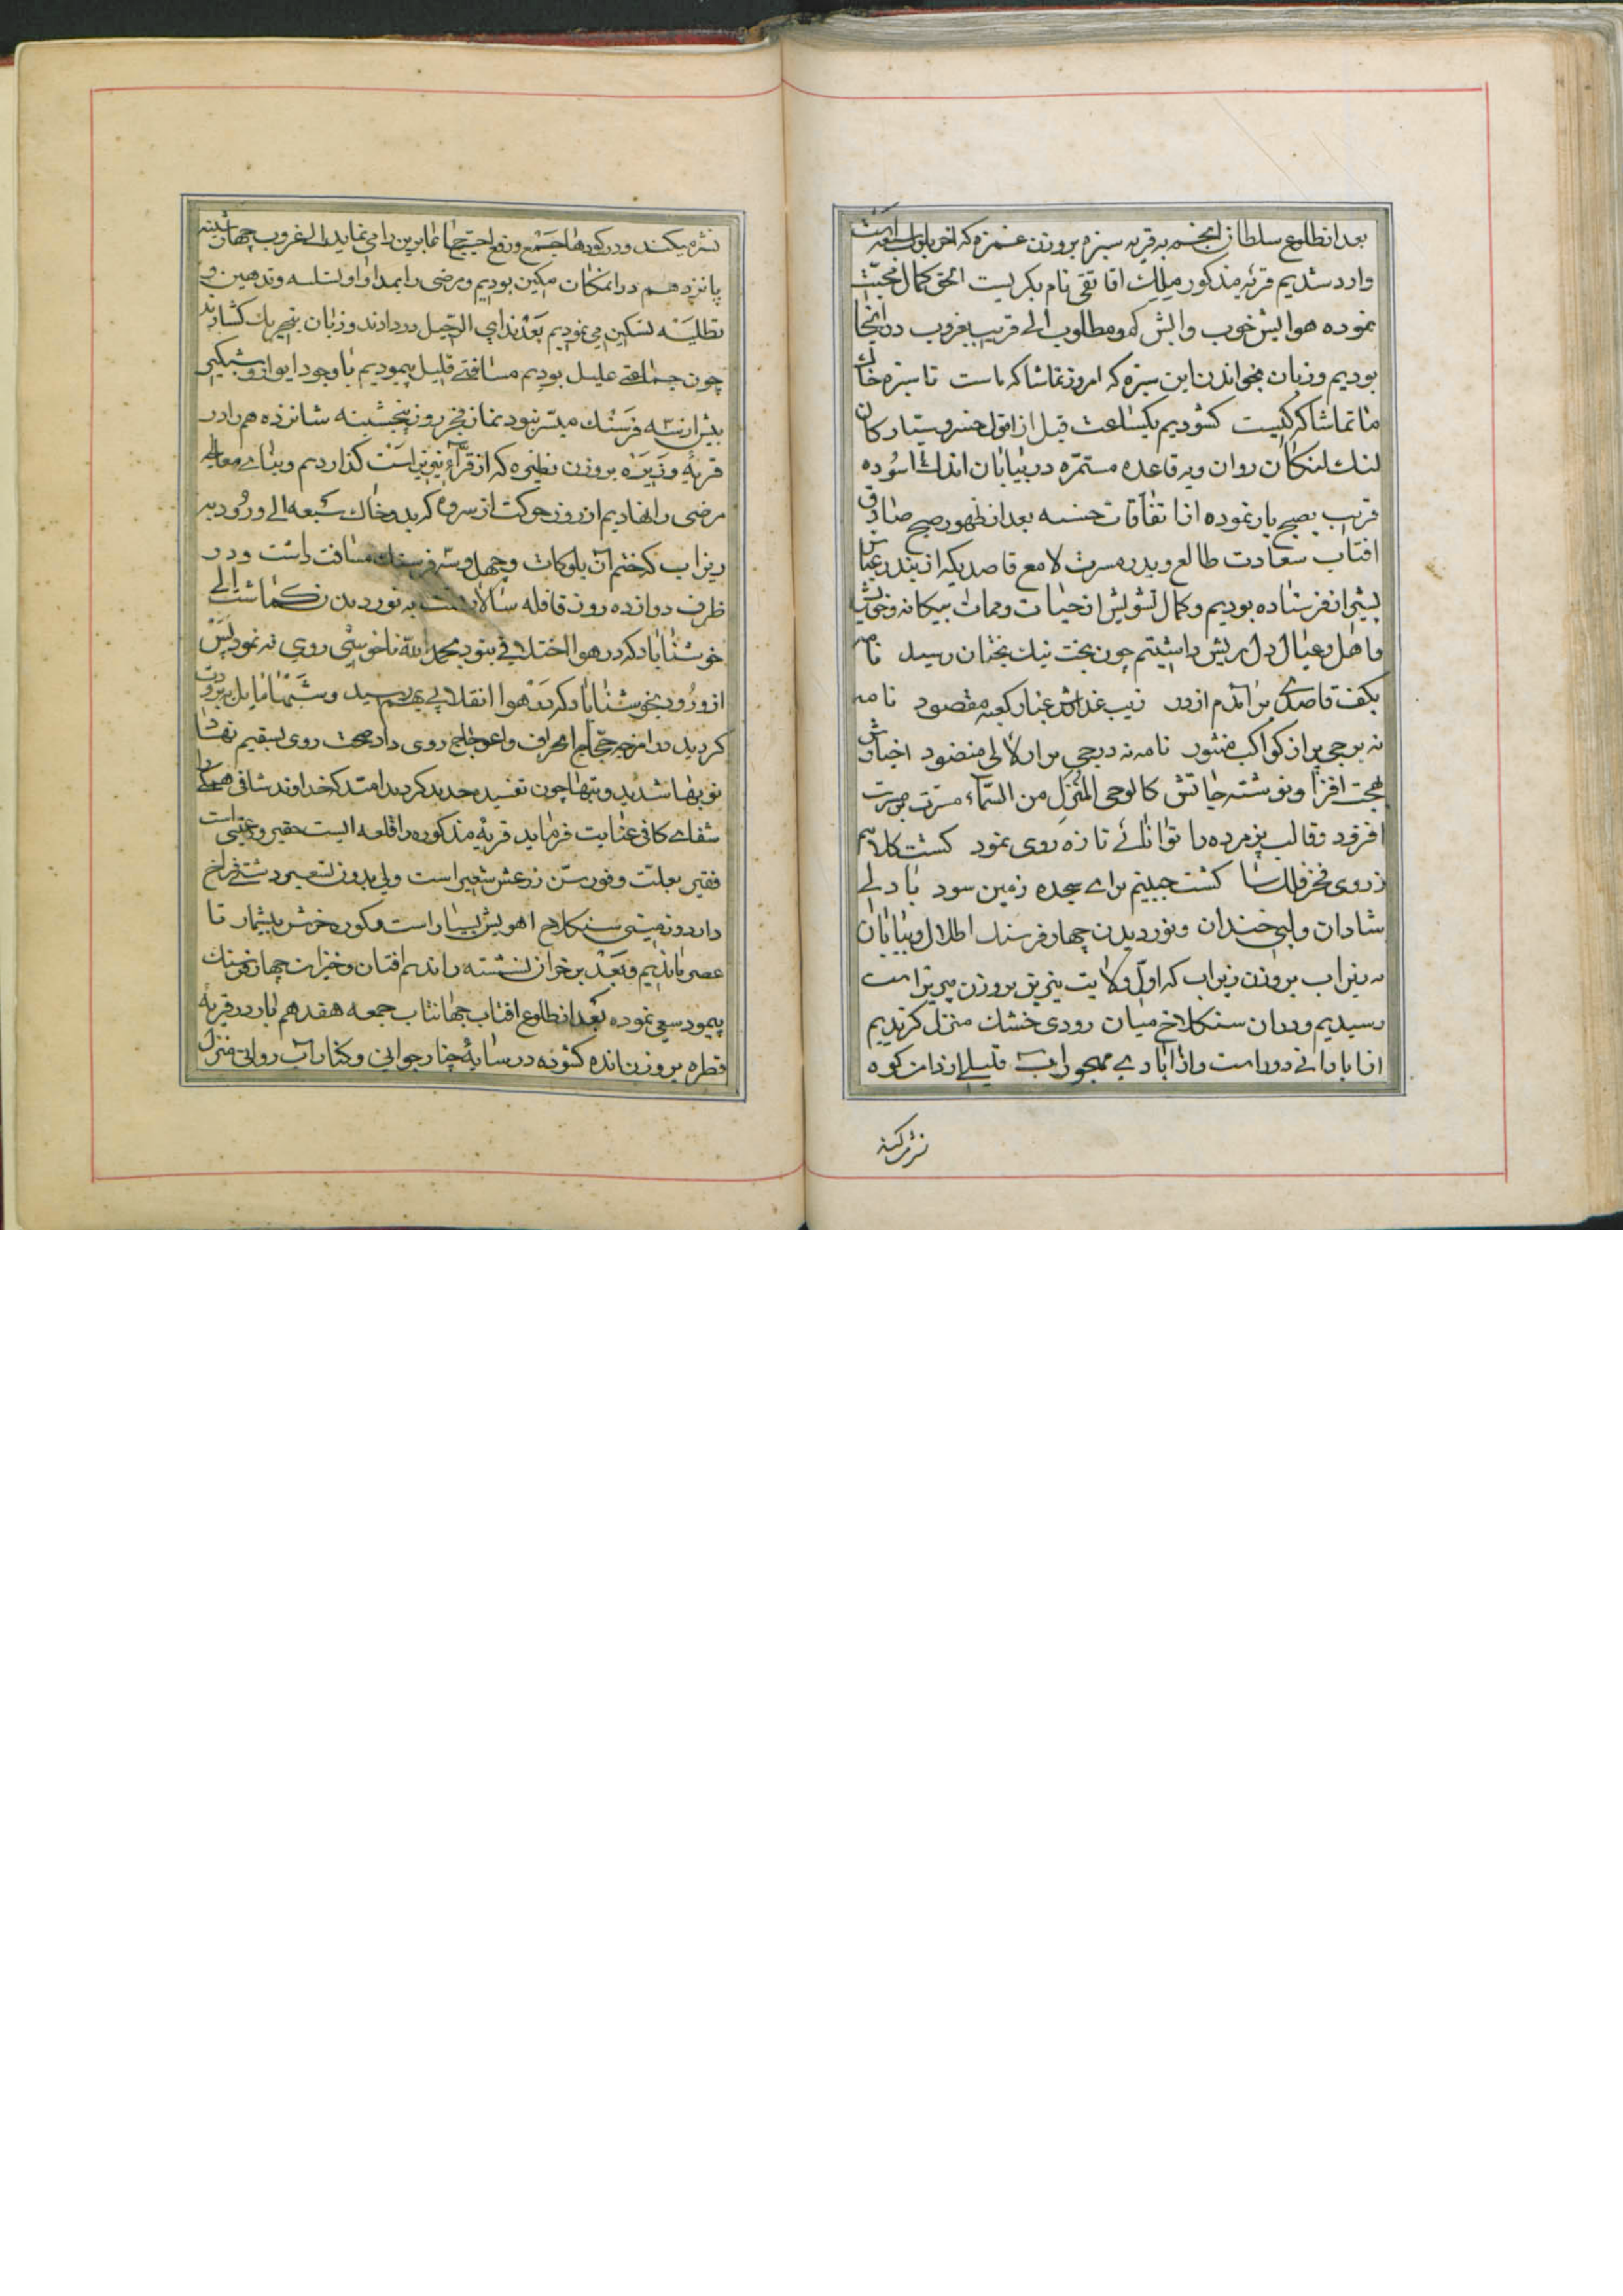 بعد از طلوع سلطان انجم به قریه سبزه بر وزن غمزه که اخر بلوکات است
وارد شدیم قریه مذکور ملک اقا تقی نام بکریست الحق کمال محبت
نموده هوایش خوب و ابش کم و مطلوب الی قریب بغروب در انجا
بودیم و زبان بخواندن این سبزه که امروز تماشاکه ماست تا سبزه خاک
ما تماشاکه کیست کشودیم یکساعت قبل از افول خسرو سیارکان
لنک لنکان روان و به قاعده مستمره در بیابان اندک اسوده
قریب بصبح بار نموده از اتفاقات حسنه بعد از ظهور صبح صادق
افتاب سعادت طالع و بدر مسرت لامع قاصدیکه از بندر عباس
پیش از نفرستاده بودیم و کمال تشویش از حیات و ممات بیکانه و خویش
و اهل و عیال دل پریش داشتیم چون بخت نیک بختان رسید نامه
بکف قاصدی بر امدم از در زیب عذارش غبار کعبه مقصود نامه
نه برجی پر از کواکب منثور نامه نه درجی پر از لالی منضود اخبارش
بهجت افزا و نوشته‌جاتش کالوحی المنزل من السماء مسرت بر مسرت
افزود و قالب پژمرده را توانائی تازه روی نمود کشت کلاهم
ز روی فخر فلک سا کشت جبینم برای سجده زمین سود با دلی
شادان و لبی خندان و نوردیدن چهار فرسنک اطلال و بیابان
به زیراب بر وزن زیراب که اول ولایت نیریز بر وزن پیریز است
رسیدیم و در ان سنکلاخ میان رودی خشک منزل کزیدیم
از ابادانی دور است و از ابادی مهجور اب قلیلی از دامن کوه
نثر میکند
نثر میکند و در کودها جمع و رفع احتیاجا نمابرین را می‌نماید الی غروب چهارشنبه
پانزدهم در انمکان مکین بودیم و مرضی را بمداوا و تسلیه و تدهین و
تطلیه تسکین می‌نمودیم بعد ندای الرحیل در دادند و زبان بتحریک کشادند
چون جماعتی علیل بودیم مسافتی قلیل پیمودیم با وجود ایوار و شبکیر
بیش از سه فرسنک میسر نبود نماز فجر روز پنجشنبه شانزدهم را در
قریه وزیره بر وزن نظیره که از قراء نیریز است کذاردیم و بنای معالجه
مرضی را نهادیم از روز حرکت از سروه کرید و خاک سبعه الی ورود به
ریزاب که ختم ان بلوکات و چهل و شش فرسنک مسافت داشت و در
ظرف دوازده روز قافله سالار به نوردیدن کماشت الی
خوشناباد که در هوا اختلافی نبود بحمد الله ناخوشی روی نه نمود پس
از ورود بخوشناباد که در هوا انقلابی بهم رسید و شبها مایل به برودت
کردید در امزجه حجاج انحراف و اعوجاج روی داد صحت روی بسقیم نهاد
نوبها شدید و تبها چون تفسیده حدید کردید امید که خداوند شافی همکی را
شفای کافی عنایت فرماید قریه مذکوره را قلعه ایست حقیر و رعیتی است
فقیر بعلت وفور سن زرعش شعیر است ولی بدون تسعیر دشتی فراخ
دارد و زمینی سنکلاخ اهویش بسیار است و کوره خرش بیشمار تا
عصر ماندیم و بعد بر خران نشسته راندیم افتان و خیزان چهار فرسنک
پیمود سعی نموده بعد از طلوع افتاب جهانتاب جمعه هفدهم بار در قریه
قطره بر وزن انده کشوده در سایه چنار جوانی و کنار اب روانی منزل